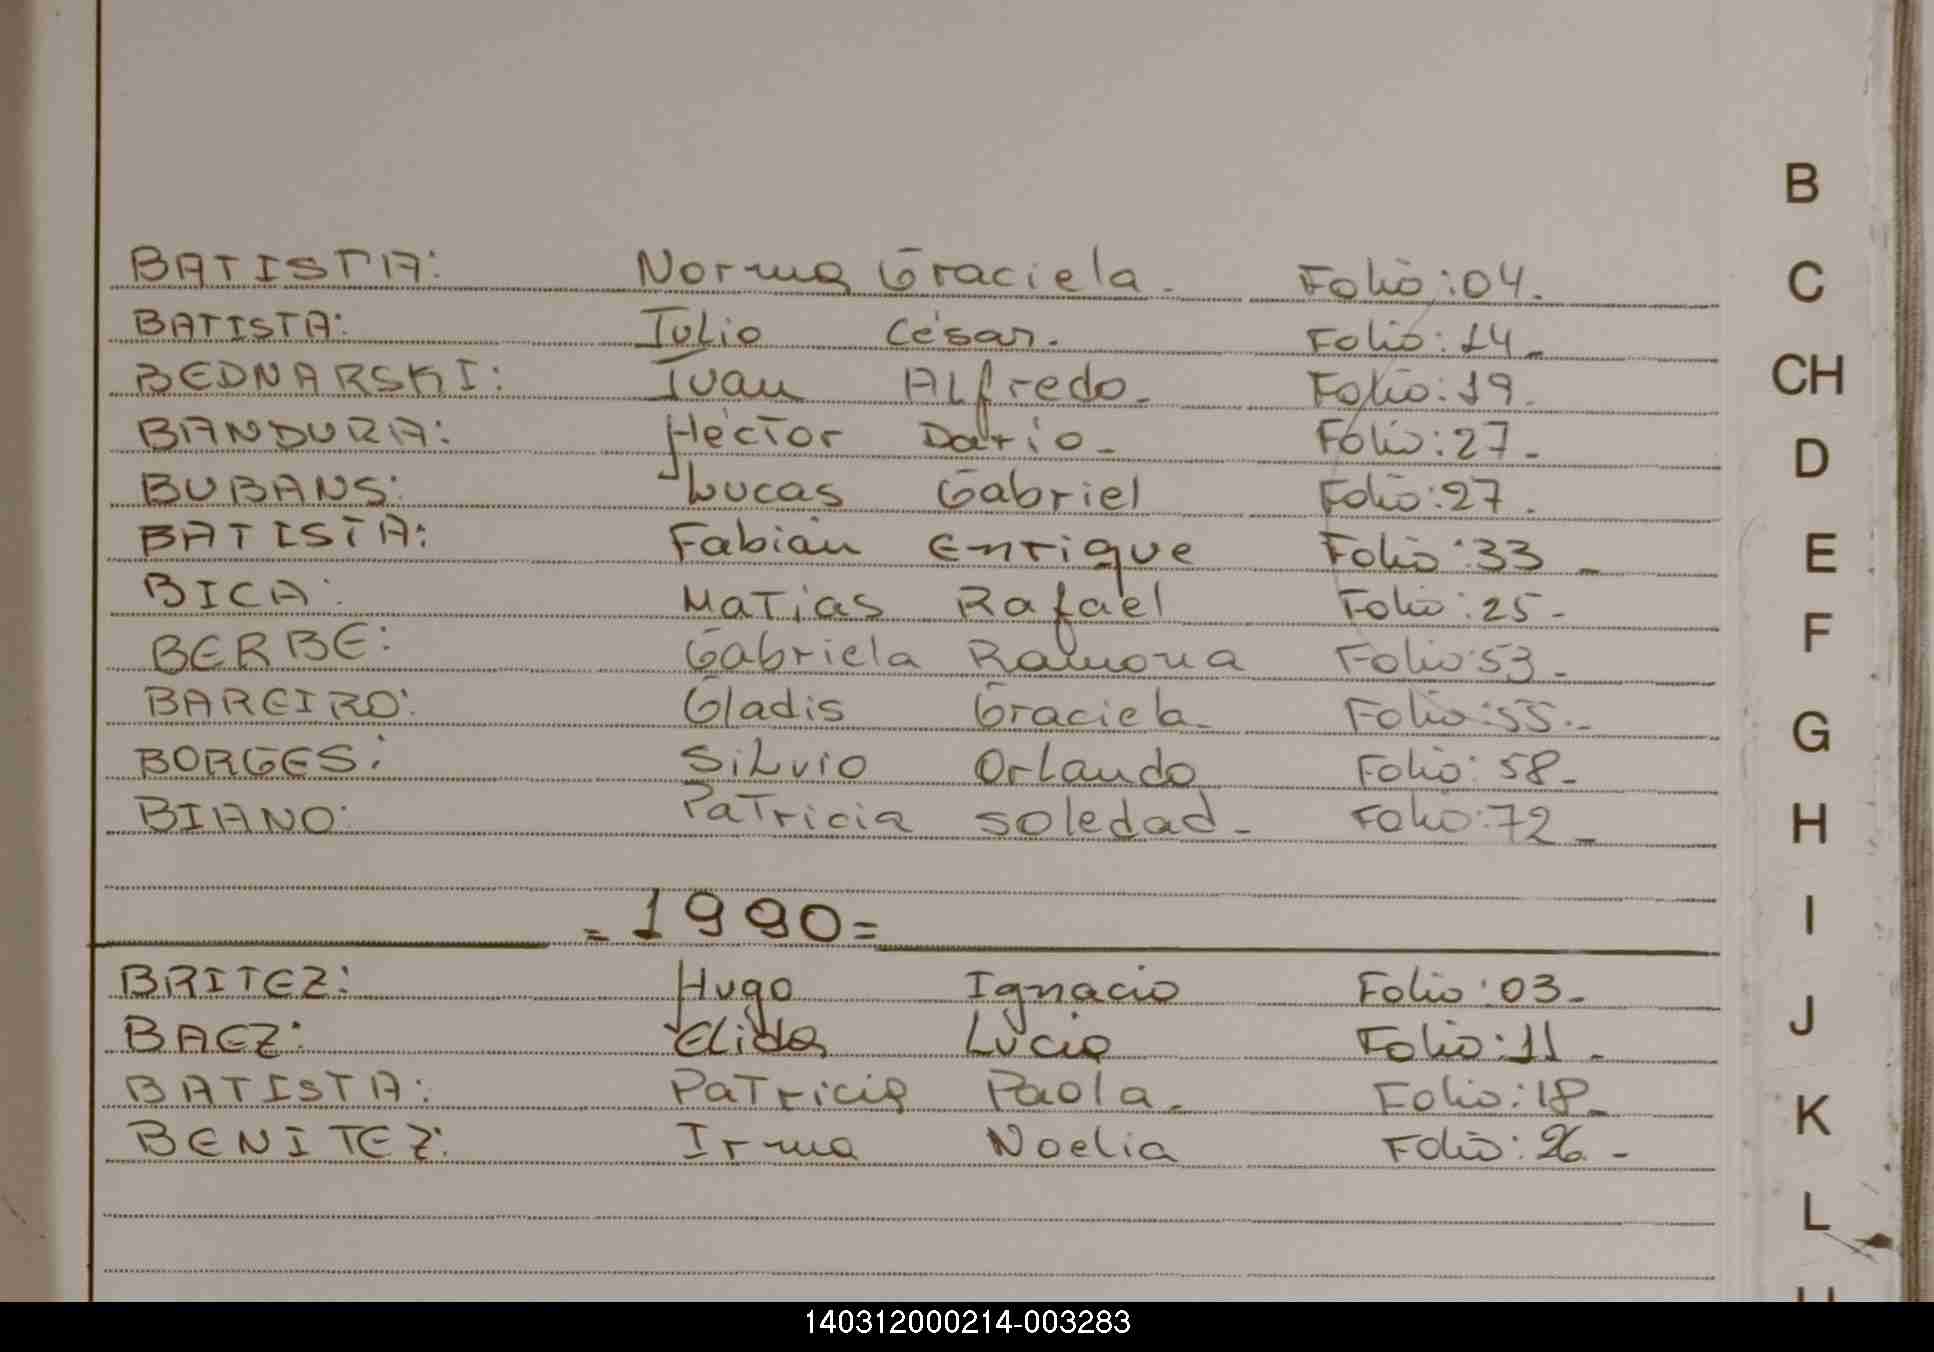 BATISTA: Norma Graciela. Folio:04.
BATISTA: Julio César. Folio:14-
BEDNARSKI: Ivan ALfredo- Folio:19.
BANDURA: Héctor Dario- Folio:27-
BUBANS: Lucas Gabriel Folio:27.
BATISTA: Fabián Enrique Folio:33-
BICA: Matias Rafael Folio:25-
BERBE: Gabriela Ramona Folio:53-
BAREIRO: Gladis Graciela- Folio:55.-
BORGES: SiLvio OrLando Folio:58-
BIANO: Patricia Soledad- Folio:72-
=1990=
BRITEZ: Hugo Ignacio Folio:03-
BAEZ: Elida Lucia Folio:11-
BATISTA: Patricia Paola- Folio:18-
BENITEZ: Irma Noelia Folio:26.-
B
C
CH
D
E
F
G
H
I
J
K
L
140312000214-003283